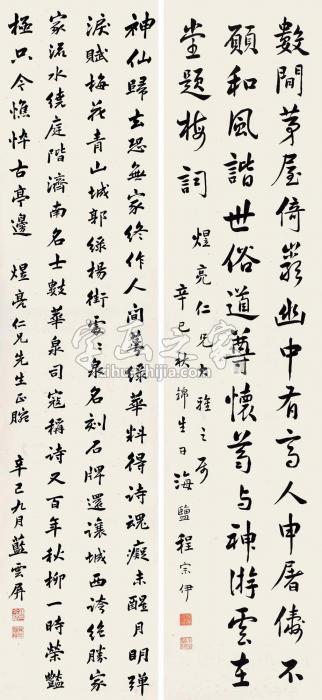 數間茅屋倚巖幽中有高人申屠倭不
願和風諧世俗道尊懷葛与神游雲在
堂題梅詞
煜亮仁兄大雅之屬
辛巳秋錦生日海鹽程宗伊
神仙歸去恐無家終作人間萼綠華料得詩魂癡未醒月明彈
淚賦梅花青山城郭綠楊街處〻泉名刻石牌還讓城西誇絶勝家
家流水繞庭階濟南名士數華泉司寇稱詩又百年秋柳一時榮豔
極只今憔悴古亭邊
煜亮仁兄先生正腕
辛巳九月藍雲屏